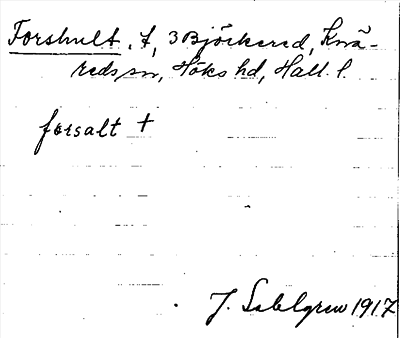 Forshult, t, 3 Björkered, Knä-
reds sn, Höks hd, Hall. l.
forsalt †
J. Sahlgren 1917